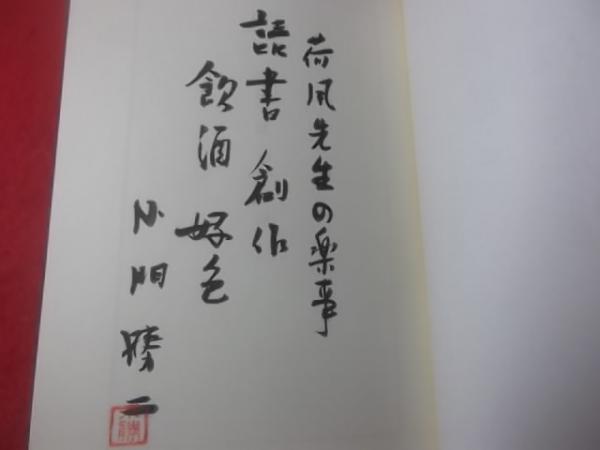 荷风先生の楽事
読書 創作
飲酒 好色
小門勝二